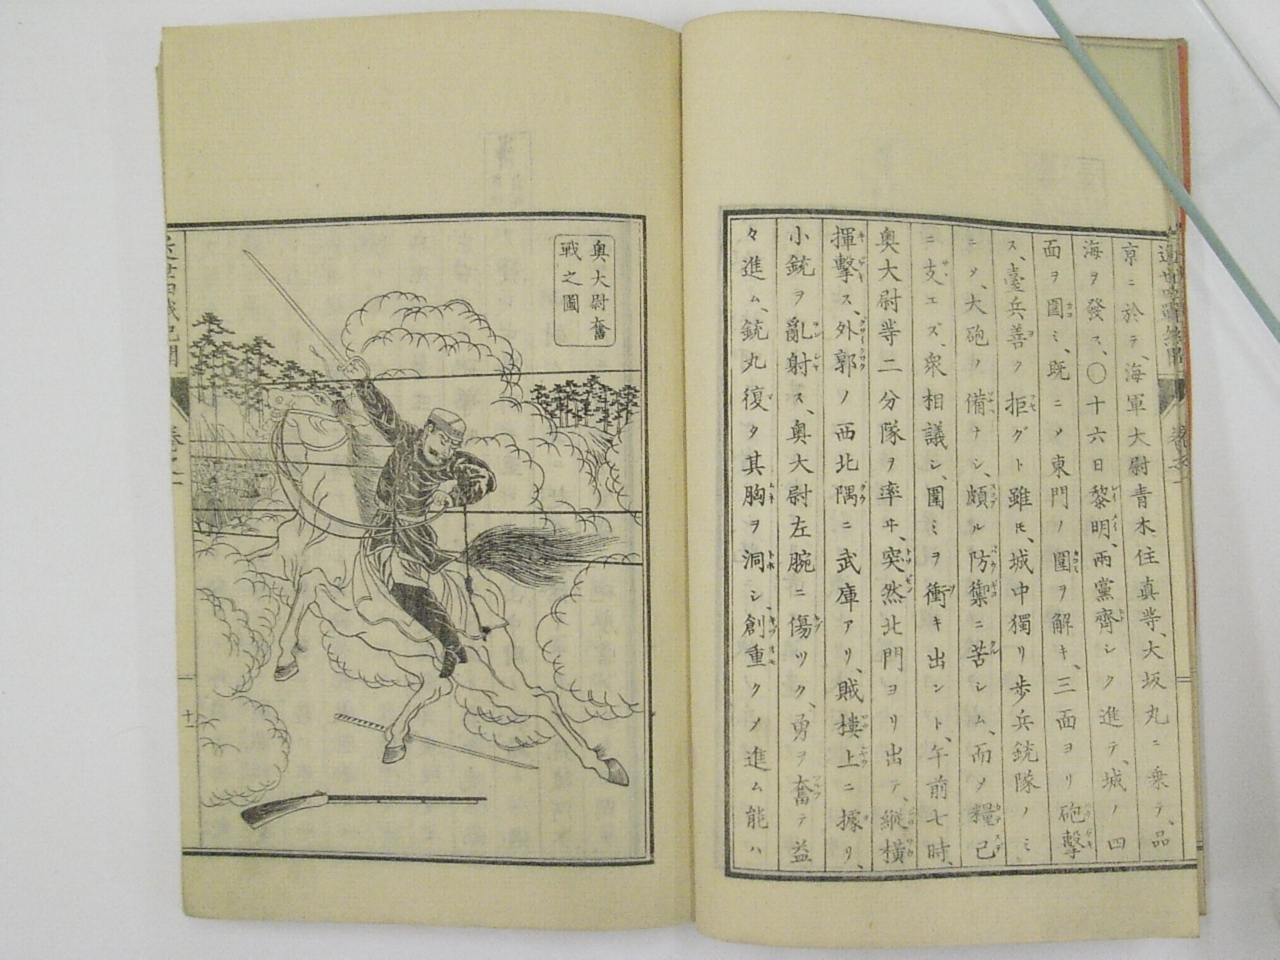 京ニ於テ、海軍大尉青木住眞等、大坂丸ニ乗テ、品
海ヲ發ス、〇十六日黎明、兩黨齊シク進テ、城ノ四
面ヲ圍ミ、既ニノ東門ノ圍ヲ解キ、三面ヨリ砲擊
ス、臺兵善ク拒グト雖モ、城中獨リ歩兵銃隊ノミ
ニメ、大砲ノ備ナシ、頗ル防禦ニ苦シム、而メ糧已
ニ支エズ、衆相議シ、圍ミヲ衝キ出ント、午前七時、
奥大尉等二分隊ヲ率ヰ、突然北門ヨリ出テ、縱横
揮擊ス、外郭ノ西北隅ニ武庫アリ、賊樓上ニ據リ、
小銃ヲ亂射ス、奥大尉左腕ニ傷ツク、勇ヲ奮テ益
々進ム、銃丸復タ其胸ヲ洞シ、創重クメ進ム能ハ
奥大尉奮
戰之圖
十一